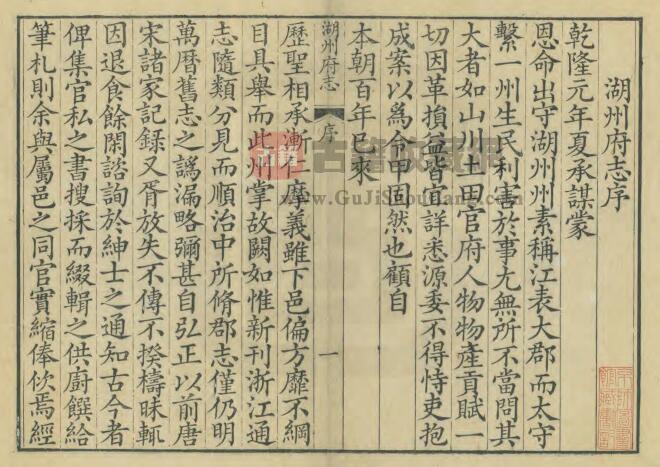 湖州府志序
乾隆元年夏承謀蒙
恩命出守湖州州素稱江表大郡而太守
繫一州生民利害於事尢無所不當問其
大者如山川土田官府人物物產貢賦一
切因革損益皆宜詳悉源委不得恃吏抱
成案以爲令甲固然也顧自
本朝百年已來
湖州府志
序
一
歷聖相承漸仁摩義雖下邑偏方靡不綱
目具舉而此州掌故闕如惟新刊浙江通
志隨類分見而順治中所脩郡志僅仍明
萬曆舊志之譌漏略彌甚自弘正以前唐
宋諸家記録又胥放失不傳不揆檮昧輒
因退食餘閑諮詢於紳士之通知古今者
俾集官私之書搜採而綴輯之供廚饌給
筆札則余與屬邑之同官實縮俸佽焉經
古籍收藏网
www.GuJiShouCang.com